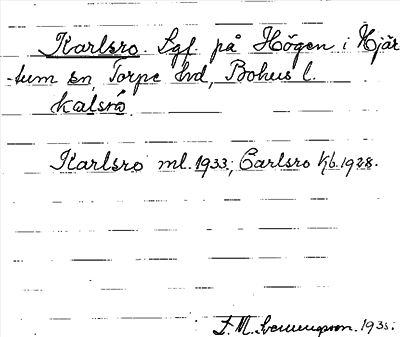 Karlsro. Lgf. på Högen i Hjär
-tum sn, Torpe hd, Bohus l.
kalsrö.
Karlsro ml. 1933; Carlsro kb. 1928.
1935.